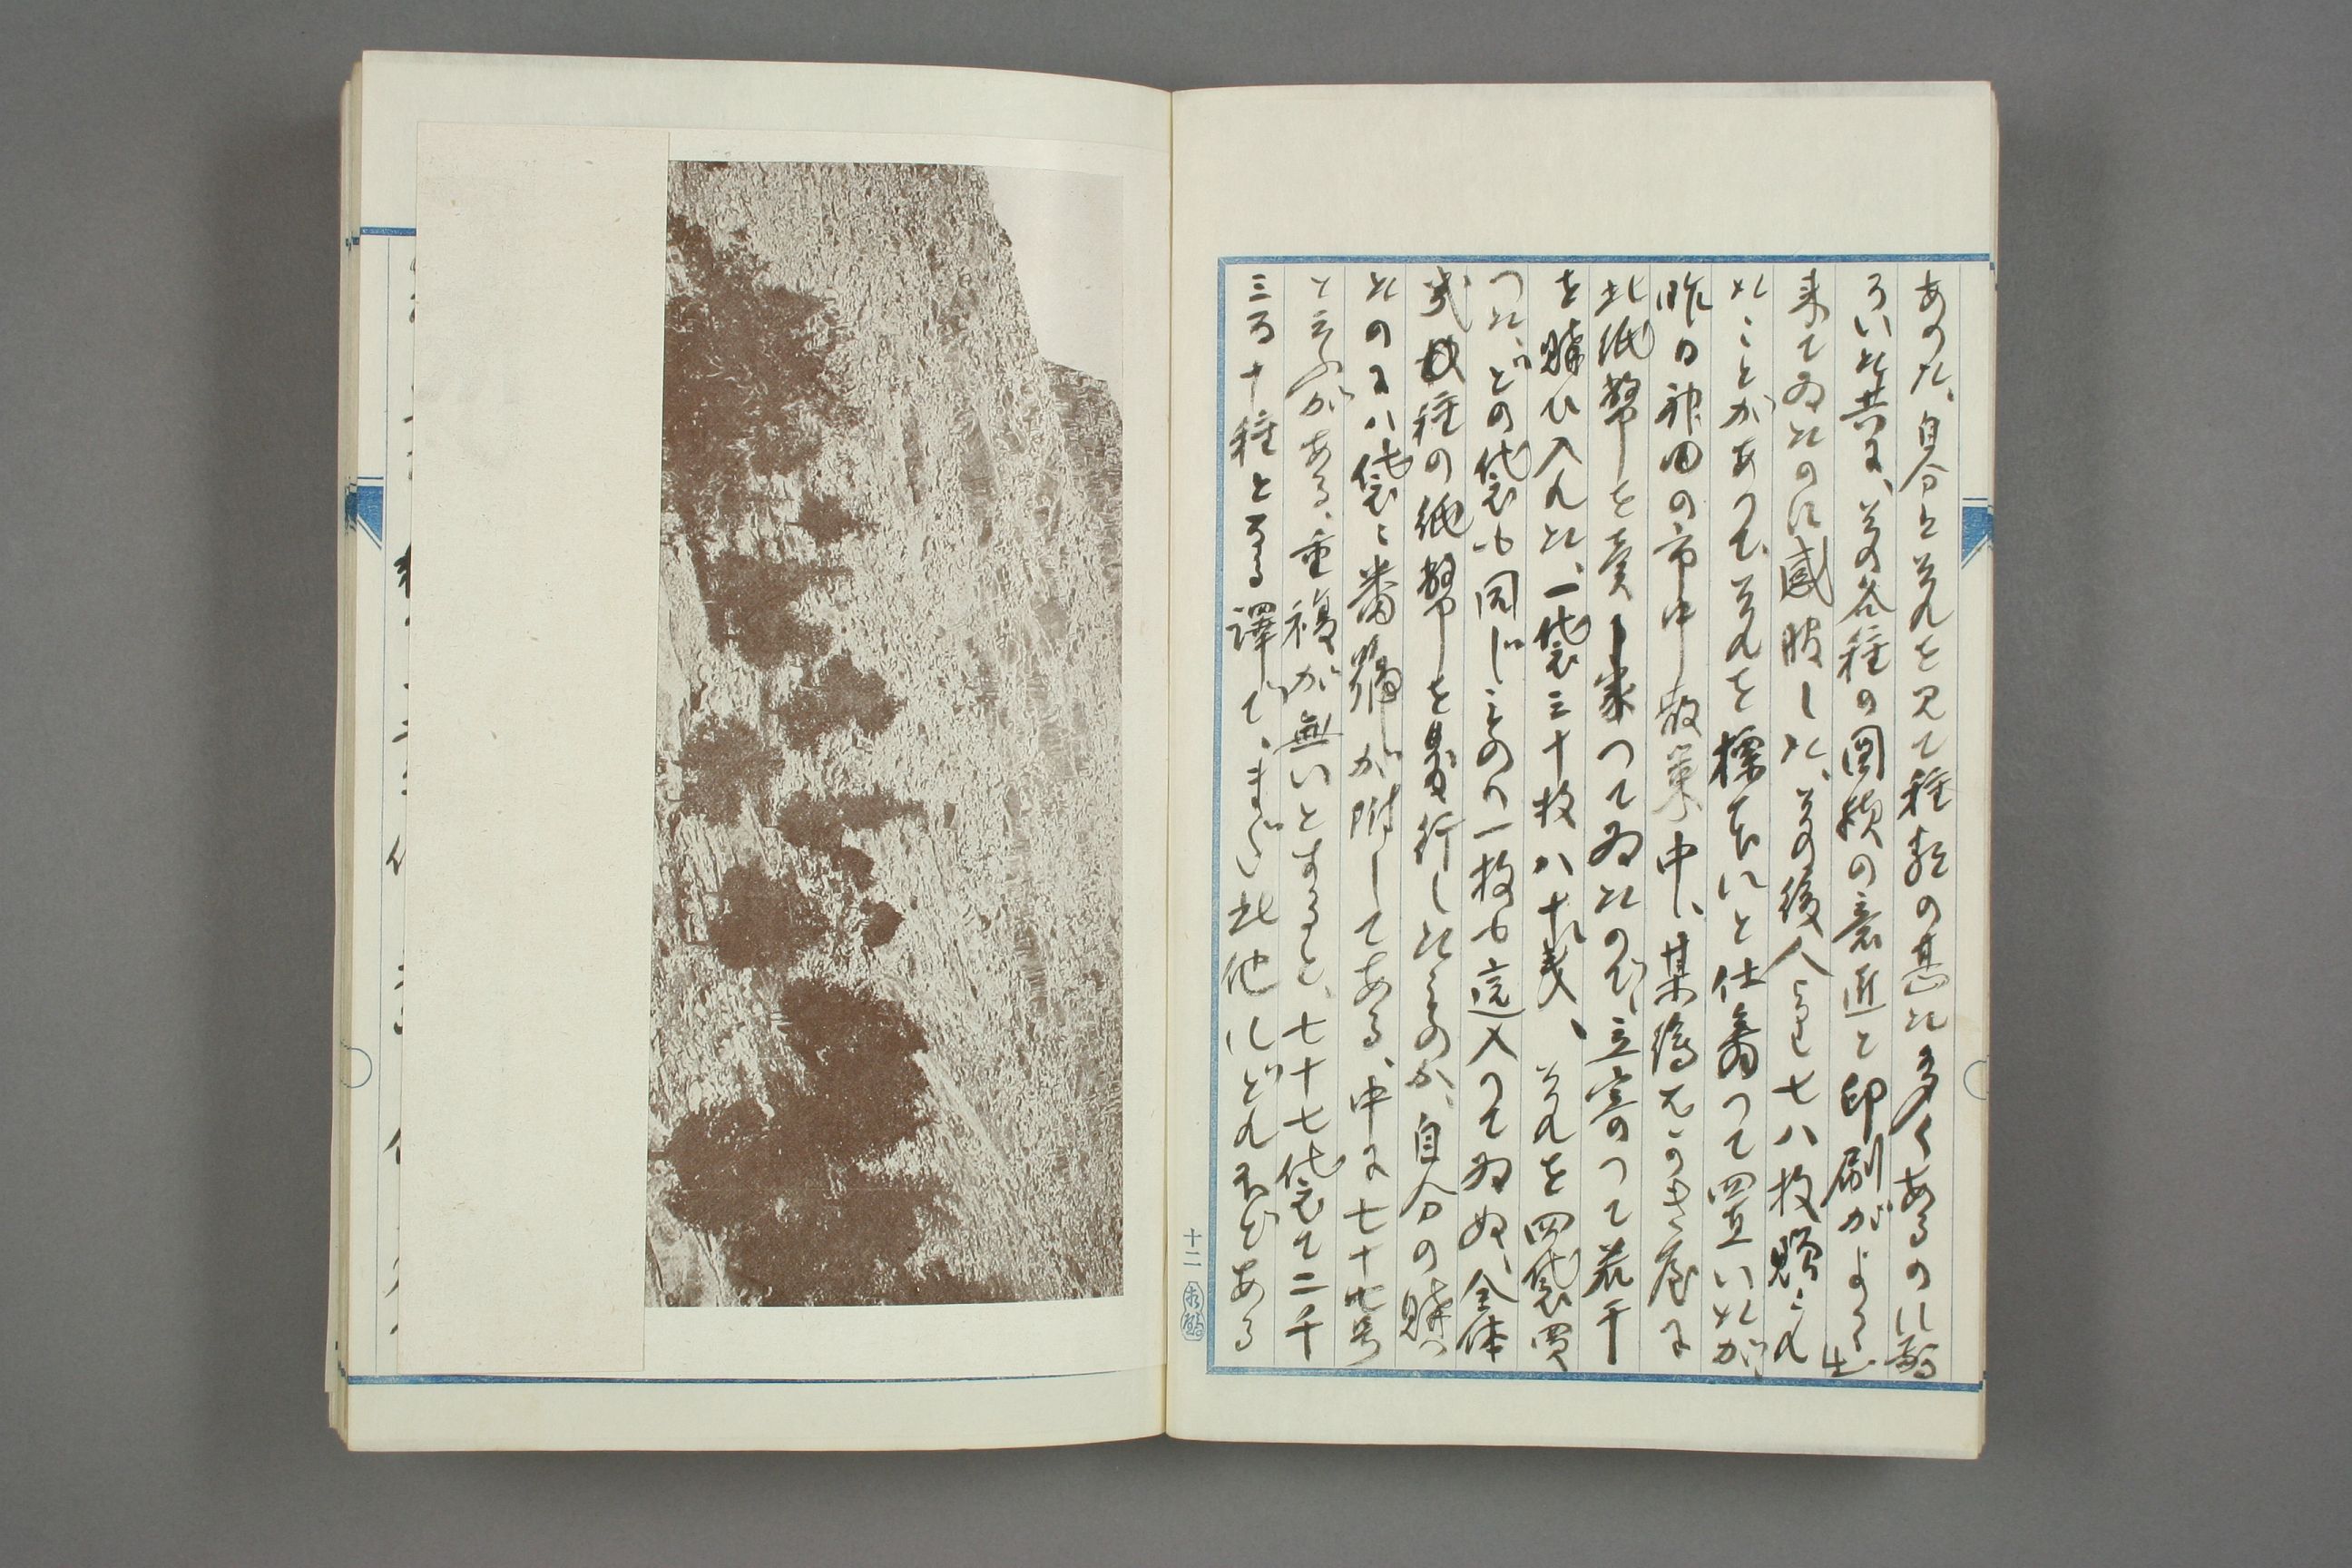 あつた、自分はそれを見て種類の甚だ多くあるのに驚
ろいた共に、其の各種の図様の意匠と印刷がよく出
来てゐたのに感服した、其後人から七八枚贈られ
たことがあつて、それを標本にと仕舞つて置いたが
昨日神田の市中散策中、某絵はがき屋に
此紙幣を売り来つてゐたので、立寄つて若干
を購ひ入れた、一袋三十枚八十銭、それを四袋買
つた、どの袋も同じものゝ一枚も這入つてゐぬ、全体
幾種の紙幣を発行したものか、自分の購つ
たのには袋に番号が附してある、中に七十七号
と云ふがある、重複が無いとすると、七十七袋で二千
三百十種となる譯で、まだ此他にどれ程ある
十二